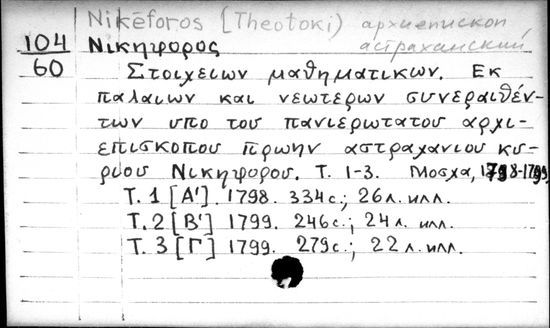 Nikēforos [Theotoki) архиепископ
104 Νικηφορος астраханский
60 Στοιχειων μαθηματικων. Εκ
παλαιων και νεωτερων συνεραιθέν-
των υπο του πανιερωτατου αρχι-
επισκοπου πρωην αστραχανιου κυ-
ριου Νικηφορου. Т. 1-3. Μοσχα, 1798-1799
Т. 1 [Α'] 1798. 334 с.; 26 л. илл.
Т. 2 [Β'] 1799. 246 с.; 24 л. илл.
Т. 3 [Γ'] 1799. 279 с.; 22 л. илл.